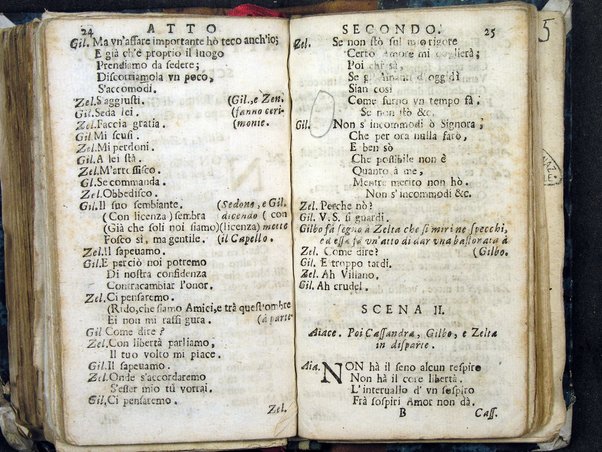 24 ATTO
Gil. Ma vn'affare importante hò teco anch'io;
E già ch'è proprio il luogo
Prendiamo da sedere;
Discorriamola vn poco,
S'accomodi.
Zel. S'aggiusti. (Gil., e Zen.
Gil. Seda lei. (fanno ceri-
Zel. Faccia gratia. (monie.
Gil. Mi scusi.
Zel. Mi perdoni.
Gil. A lei stà.
Zel. M'arrossisco.
Gl. Se commanda.
Zel. Obbedisco.
Gil. Il suo sembiante. (Sedono, e Gil.
(Con licenza) sembra dicendo (con
(Già che soli noi siamo) (licenza) mette
Fosco sì, ma gentile. (il Capello.
Zel. Il sapeuamo.
Gil. E perciò noi potremo
Di nostra confidenza
Contracambiar l'onor.
Zel. Ci pensaremo.
(Rido, che siamo Amici, e trà quest'ombre
Ei non mi raffigura. (à parte
Gil. Come dire?
Zel. Con libertà parliamo,
Il tuo volto mi piace.
Gil. Il sapeuamo.
Zel. Onde s'accordaremo
S'esser mio tù vorrai.
Gil. Ci pensaremo.
Zel.
SECONDO. 25
Zel. Se non stò sul mio rigore
Certo Amore mi coglierà;
Poi chi sà,
Se gl'Amanti d'oggidì
Sian così
Come furno vn tempo fà.
Se non stò &c.
Gil. Non s'incommodi ò Signora;
Che per ora nulla farò,
E ben sò
Che possibile non è
Quanto à me,
Mentre merito non hò.
Non s'incommodi &c.
Zel. Perche nò?
Gil. V. S. si guardi.
Gilbo fà segno à Zelta che si miri ne specchi,
ed essa fà vn'atto di dar vna bastonata à
Zel. Come dire? (Gilbo.
Gil. E troppo tardi.
Zel. Ah Villano.
Gil. Ah crudel.
SCENA II.
Aiace. Poi Cassandra, Gilbo, e Zelta
in disparte.
Aia. NON hà il seno alcun respiro
Non hà il core libertà.
L'interuallo d'vn sospiro
Frà sospiri Amor non dà.
B Cass.
5